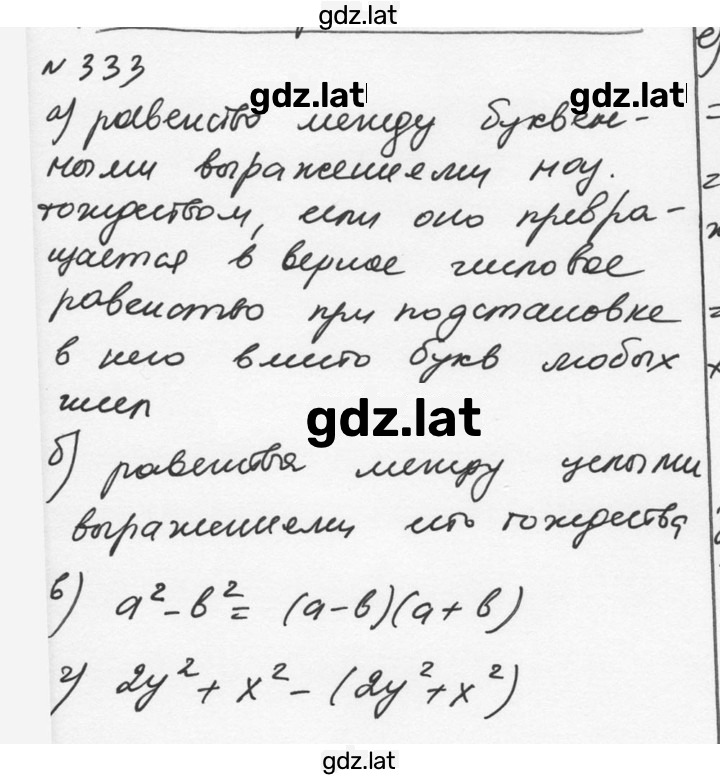 gdz.lat
№ 333
gdz.lat gdz.lat
а) равенство между буквен-
ными выражениями наз.
тождеством, если оно превра-
щается в верное числовое
равенство при подстановке
в него вместо букв любых
чисел
gdz.lat
б) равенства между целыми
выражениями есть тождества
в) a² - b² = (a - b)(a + b)
г) 2y² + x² - (2y² + x²)
gdz.lat